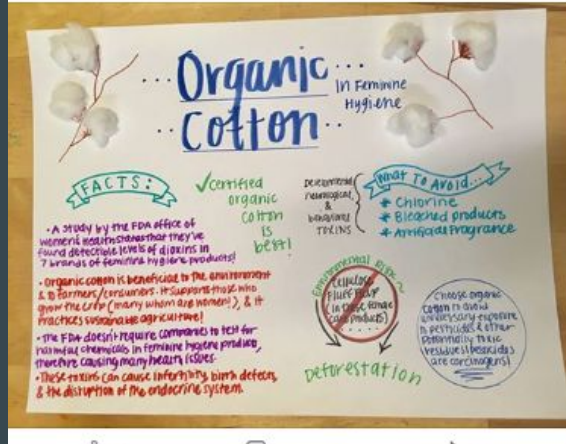 Organic
Cotton
In Feminine
Hygiene
FACTS:
• A study by the FDA office of
women's health states that they've
found detectible levels of dioxins in
7 brands of feminine hygiene products!
• Organic cotton is beneficial to the environment
& to farmers/consumers. It supports those who
grow the crop (many whom are women!), & it
practices sustainable agriculture!
• The FDA doesn't require companies to test for
harmful chemicals in feminine hygiene products,
therefore causing many health issues.
• These toxins can cause infertility, birth defects,
& the disruption of the endocrine system.
✓certified
organic
cotton
is
best!
Developmental
neurological,
&
behavioral
TOXINS
What To Avoid...
* Chlorine
* Bleached products
* Artificial Fragrance
Environmental Risk~
Cellulose
Fluff Pulp
(in most female
care products)
Deforestation
Choose organic
cotton to avoid
unnecessary exposure
to pesticides & other
potentially toxic
residues! Pesticides
are carcinogens!